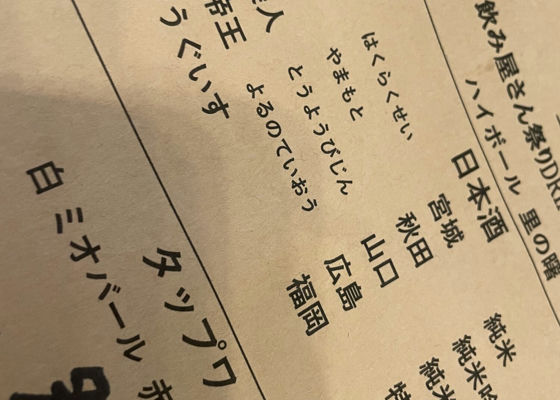 飲み屋さん祭りDRI
ハイボール 里の曙
日本酒
はくらくせい 宮城 純米
やまもと 秋田 純米吟
とうようびじん 山口 純米
人
よるのていおう 広島 特
帝王
うぐいす 福岡
タップワ
白 ミオバール 赤